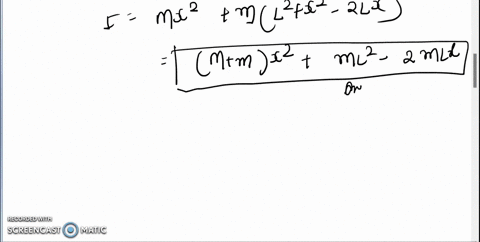 I = Mx² + m(L²+x²- 2Lx)
= (M+m)x² + mL² - 2mLx
Ans
RECORDED WITH
SCREENCAST MATIC